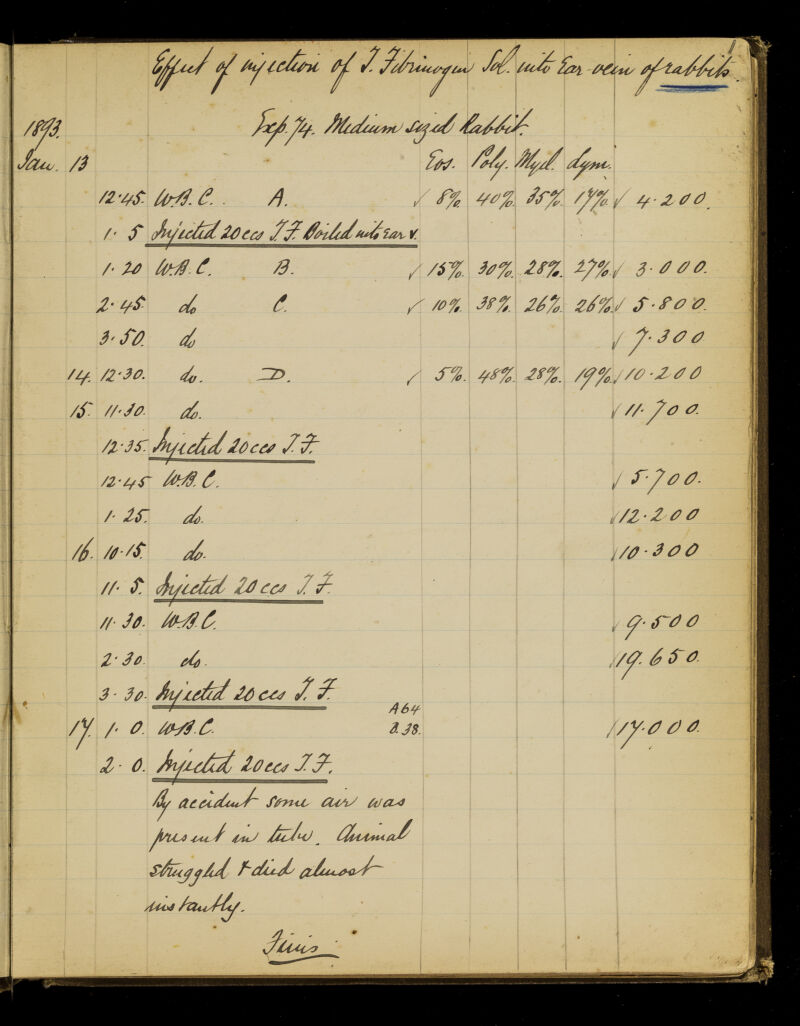 Effect of injection of T. Fibrinogen Sol. into Ear vein of rabbits.
1893. Exp. 74. Medium sized Rabbit.
Jan. 13 Eos. Poly. Myel. Lym.
12.45. W.B.C. A. ✓ 8% 40% 35% 17% ✓ 4.200.
1.5 Injected 20ccs T.F. Boiled into Ear v.
1.20 W.B.C. B. ✓ 15% 30% 28% 27% ✓ 3.000.
2.45. do C. ✓ 10% 38% 26% 26% ✓ 5.800.
3.50. do ✓ 7.300
14. 12.30. do. D. ✓ 5% 48% 28% 19% ✓ 10.200
15. 11.30. do. ✓ 11.700.
12.35. Injected 20ccs T.F.
12.45 W.B.C. ✓ 5.700.
1.25. do. ✓ 12.200
16. 10.15. do. ✓ 10.300
11.5. Injected 20ccs T.F.
11.30. W.B.C. ✓ 9.500
2.30. do. ✓ 19.650.
3.30. Injected 20ccs T.F.
A 64
17. 1.0. W.B.C. 38. ✓ 17.000.
2.0. Injected 20ccs T.F.
By accident some air was
present in tube. Animal
struggled & died almost
instantly.
Finis